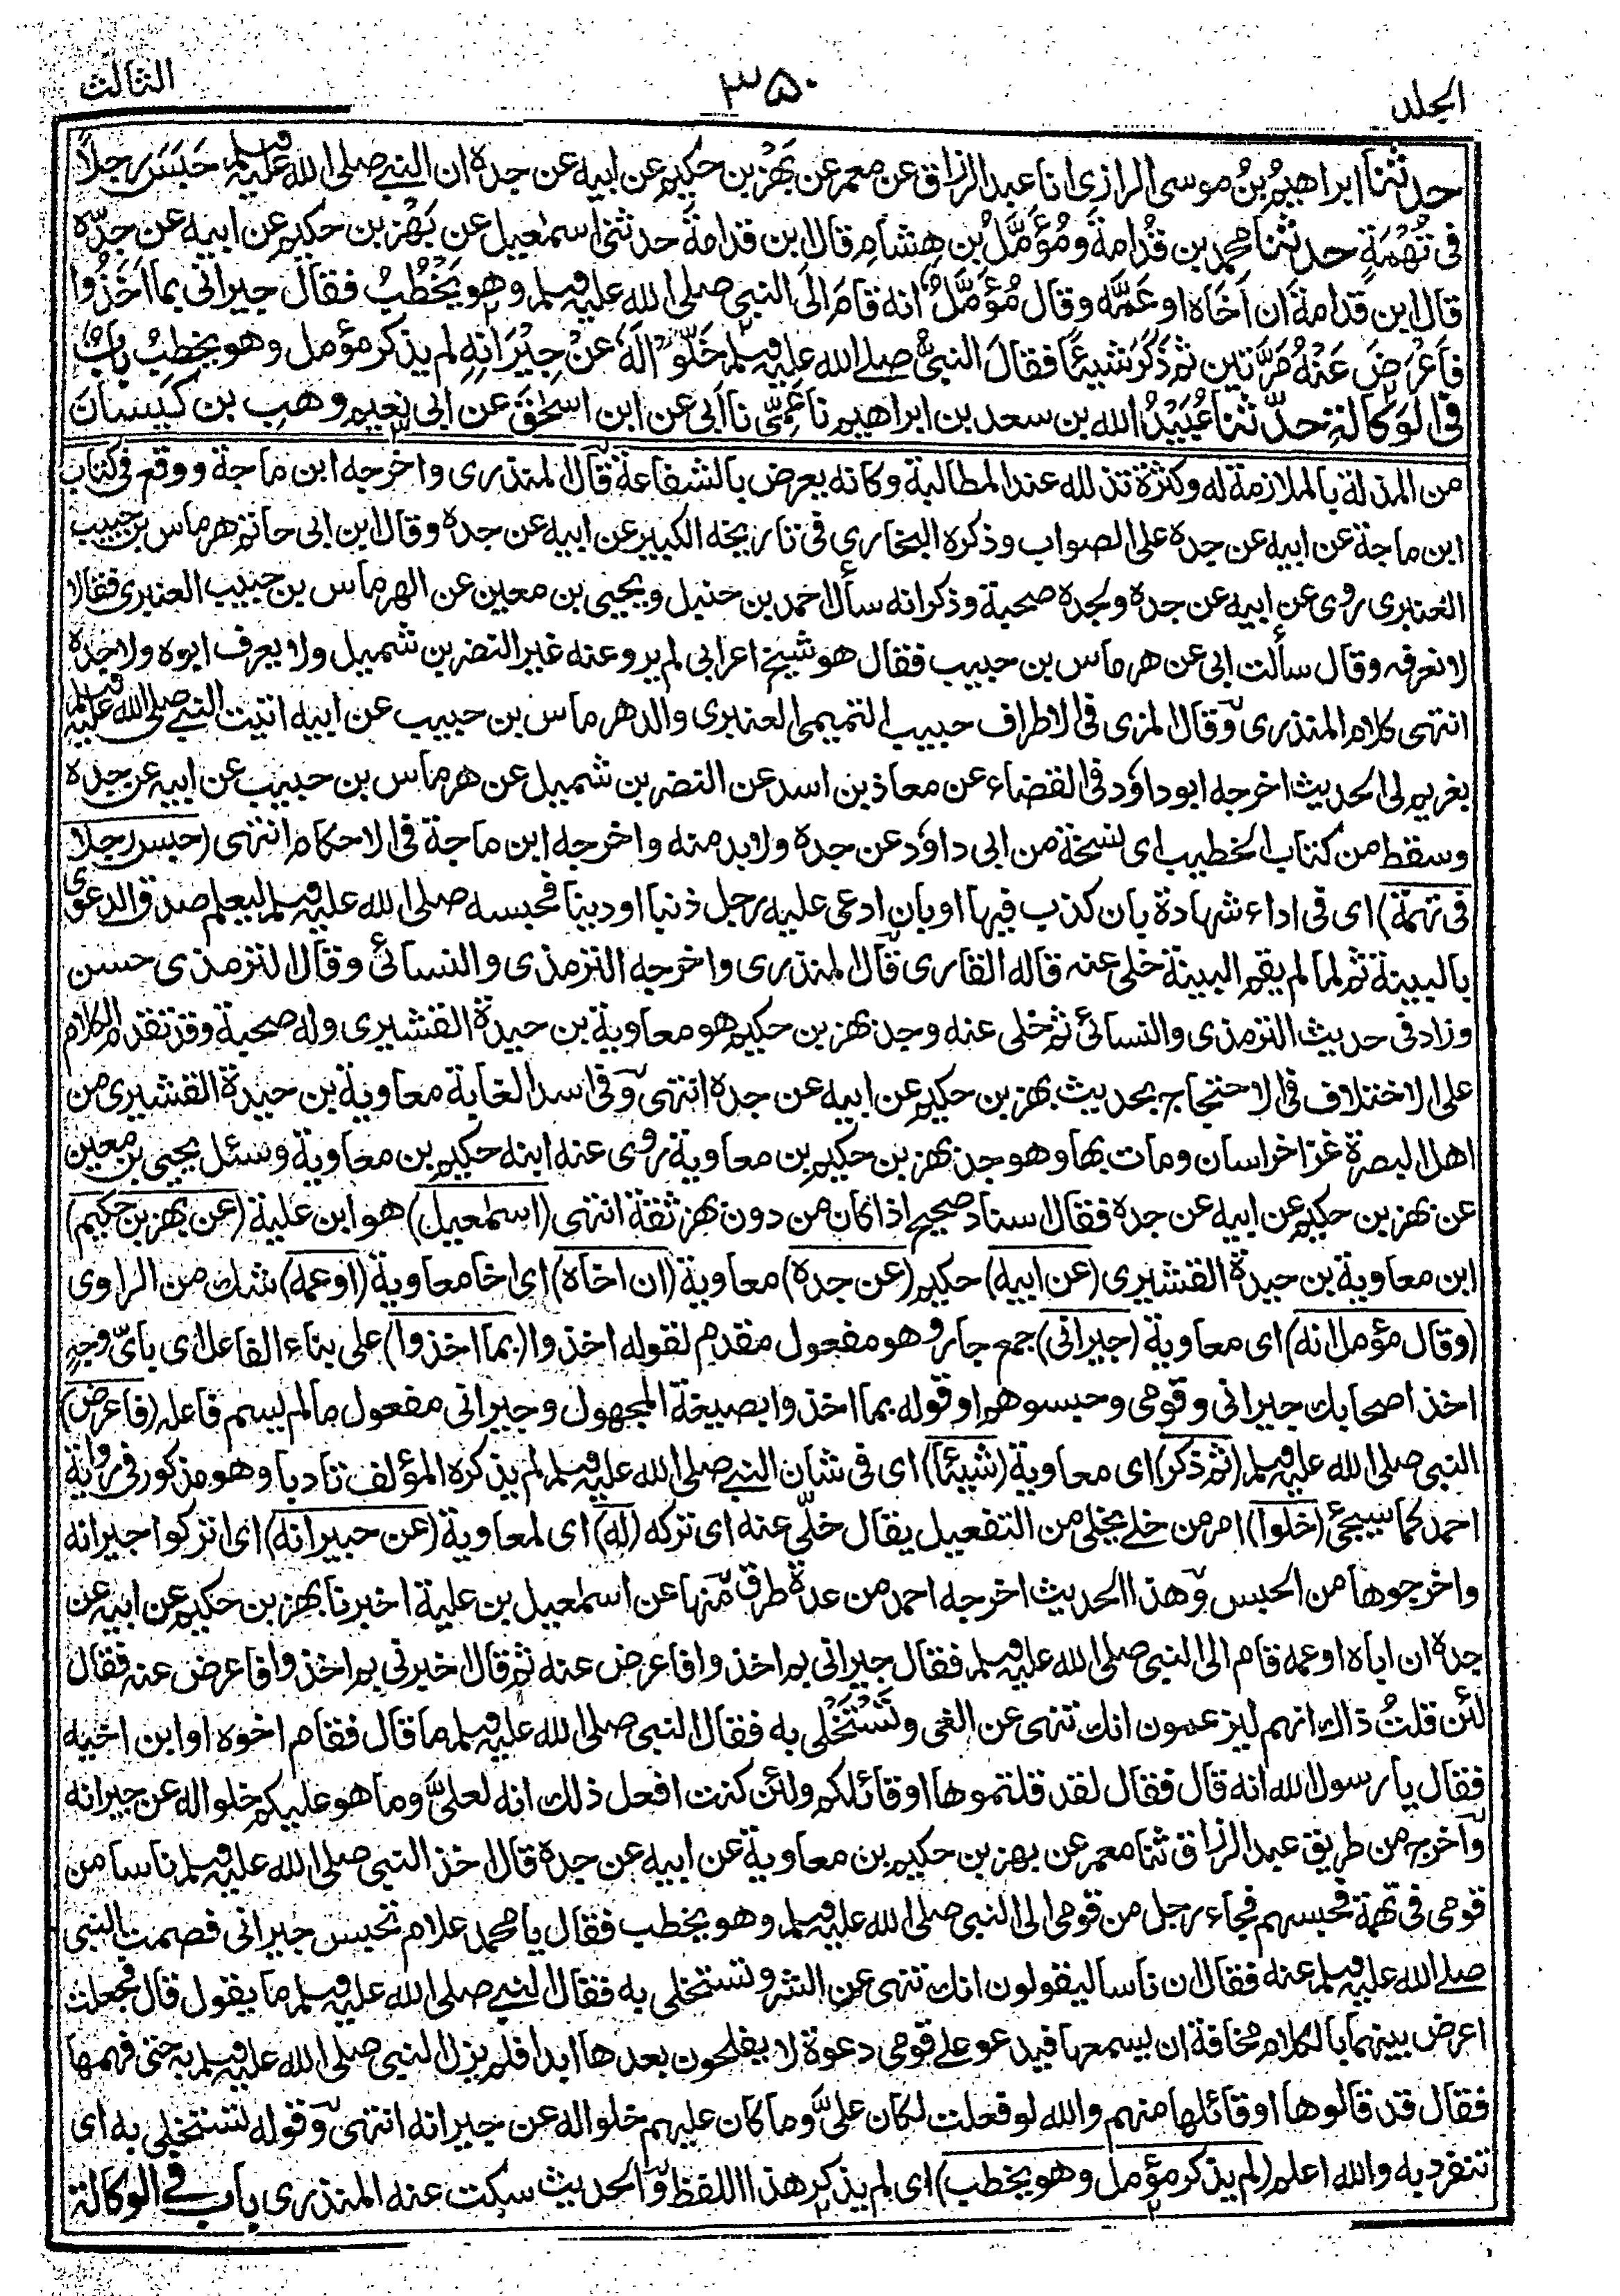 الجلد
٣٥٠
الثالث
حدثنا ابراهيم بن موسى الرازى انا عبد الرزاق عن معمر عن بَهْز بن حكيم عن ابيه عن جده ان النبى صلى الله عليه وسلم حَبَسَ رجلاً
فى تُهْمَةٍ حدثنا محمد بن قُدامةَ ومُؤَمَّلُ بن هِشامٍ قال ابن قدامةَ حدثنى اسمٰعيل عن بَهْز بن حكيم عن ابيه عن جدّه
قال ابن قدامةَ ان اَخَاه او عَمَّه وقال مُؤَمَّلٌ انه قامَ الَى النبى صلى الله عليه وسلم وهو يَخْطُبُ فقال جيرانى بما اَخَذُوا
فاَعْرَضَ عَنْهُ مَرَّتين ثم ذَكَرَ شيئًا فقالَ النبىُّ صلى الله عليه وسلم خَلُّوا لَهُ عَنْ جِيْرَانِهِ لم يذكر مؤمل وهو يخطبُ بابٌ
فى الوَكَالَةِ حدّثنا عُبَيْدُ الله بن سعد بن ابراهيم نا عَمِّى نا اَبى عن ابن اسحٰقَ عن ابى نعيم وهب بن كَيْسَانَ
من المذلة بالملازمة له وكثرة تذلله عند المطالبة وكانه يعرض بالشفاعة قال المنذرى واخرجه ابن ماجة ووقع فى كتاب
ابن ماجة عن ابيه عن جده على الصواب وذكره البخارى فى تاريخه الكبير عن ابيه عن جده وقال ابن ابى حاتم هرماس بن حبيب
العنبرى روى عن ابيه عن جده ولجده صحبة وذكر انه سأل احمد بن حنبل ويحيى بن معين عن الهرماس بن حبيب العنبرى فقالا
لا نعرفه وقال سألت ابى عن هرماس بن حبيب فقال هو شيخ اعرابى لم يرو عنه غير النضر بن شميل ولا يعرف ابوه ولا جده
انتهى كلام المنذرى وقال المزى فى الاطراف حبيب التميمى العنبرى والد هرماس بن حبيب عن ابيه اتيت النبى صلى الله عليه وسلم
بغريم لى الحديث اخرجه ابو داوٗد فى القضاء عن معاذ بن اسد عن النضر بن شميل عن هرماس بن حبيب عن ابيه عن جده
وسقط من كتاب الخطيب اى نسخة من ابى داوٗد عن جده ولا بد منه واخرجه ابن ماجة فى الاحكام انتهى (حبس رجلا
فى تهمة) اى فى اداء شهادة بان كذب فيها او بان ادعى عليه رجل ذنبا او دينا فحبسه صلى الله عليه وسلم ليعلم صدق الدعوى
بالبينة ثم لما لم يقم البينة خلى عنه قاله القارى قال المنذرى واخرجه الترمذى والنسائى وقال الترمذى حسن
وزاد فى حديث الترمذى والنسائى ثم خلى عنه وجد بهز بن حكيم هو معاوية بن حيدة القشيرى وله صحبة وقد تقدم الكلام
على الاختلاف فى الاحتجاج بحديث بهز بن حكيم عن ابيه عن جده انتهى وفى اسد الغابة معاوية بن حيدة القشيرى من
اهل البصرة غزا خراسان ومات بها وهو جد بهز بن حكيم بن معاوية روى عنه ابنه حكيم بن معاوية وسئل يحيى بن معين
عن بهز بن حكيم عن ابيه عن جده فقال اسناد صحيح اذا كان من دون بهز ثقة انتهى (اسمٰعيل) هو ابن علية (عن بهز بن حكيم)
ابن معاوية بن حيدة القشيرى (عن ابيه) حكيم (عن جده) معاوية (ان اخاه) اى اخا معاوية (او عمه) شك من الراوى
(وقال مؤمل انه) اى معاوية (جيرانى) جمع جار وهو مفعول مقدم لقوله اخذوا (بما اخذوا) على بناء الفاعل اى باىّ وجهٍ
اخذ اصحابك جيرانى وقومى وحبسوهم او قوله بما اخذوا بصيغة المجهول وجيرانى مفعول ما لم يسم فاعله (فاعرض)
النبى صلى الله عليه وسلم (ثم ذكر) اى معاوية (شيئا) اى فى شان النبى صلى الله عليه وسلم لم يذكره المؤلف تادبا وهو مذكور فى رواية
احمد كما سيجئ (خلوا) امر من خلى يخلى من التفعيل يقال خلّى عنه اى تركه (له) اى لمعاوية (عن جيرانه) اى اتركوا جيرانه
واخرجوها من الحبس وهذا الحديث اخرجه احمد من عدة طرق منها عن اسمٰعيل بن علية اخبرنا بهز بن حكيم عن ابيه عن
جده ان اباه او عمه قام الى النبى صلى الله عليه وسلم فقال جيرانى بم اخذوا فاعرض عنه ثم قال اخبرنى بم اخذوا فاعرض عنه فقال
لئن قلتُ ذاك انهم ليزعمون انك تنهى عن الغى وتَسْتَخْلى به فقال النبى صلى الله عليه وسلم ما قال فقام اخوه او ابن اخيه
فقال يا رسول الله انه قال فقال لقد قلتموها او قائلكم ولئن كنت افعل ذلك انه لعلىّ وما هو عليكم خلوا له عن جيرانه
واخرج من طريق عبد الرزاق ثنا معمر عن بهز بن حكيم بن معاوية عن ابيه عن جده قال اخذ النبى صلى الله عليه وسلم ناسا من
قومى فى تهمة فحبسهم فجاء رجل من قومى الى النبى صلى الله عليه وسلم وهو يخطب فقال يا محمد علام تحبس جيرانى فصمت النبى
صلى الله عليه وسلم عنه فقال ان ناسا ليقولون انك تنهى عن الشر وتستخلى به فقال النبى صلى الله عليه وسلم ما يقول قال فجعلت
اعرض بينهما بالكلام مخافة ان يسمعها فيدعو على قومى دعوة لا يفلحون بعدها ابدا فلم يزل النبى صلى الله عليه وسلم به حتى فهمها
فقال قد قالوها او قائلها منهم والله لو فعلت لكان علىّ وما كان عليهم خلوا له عن جيرانه انتهى وقوله تستخلى به اى
تنفرد به والله اعلم (لم يذكر مؤمل وهو يخطب) اى لم يذكر هذا اللفظ والحديث سكت عنه المنذرى باب فى الوكالة